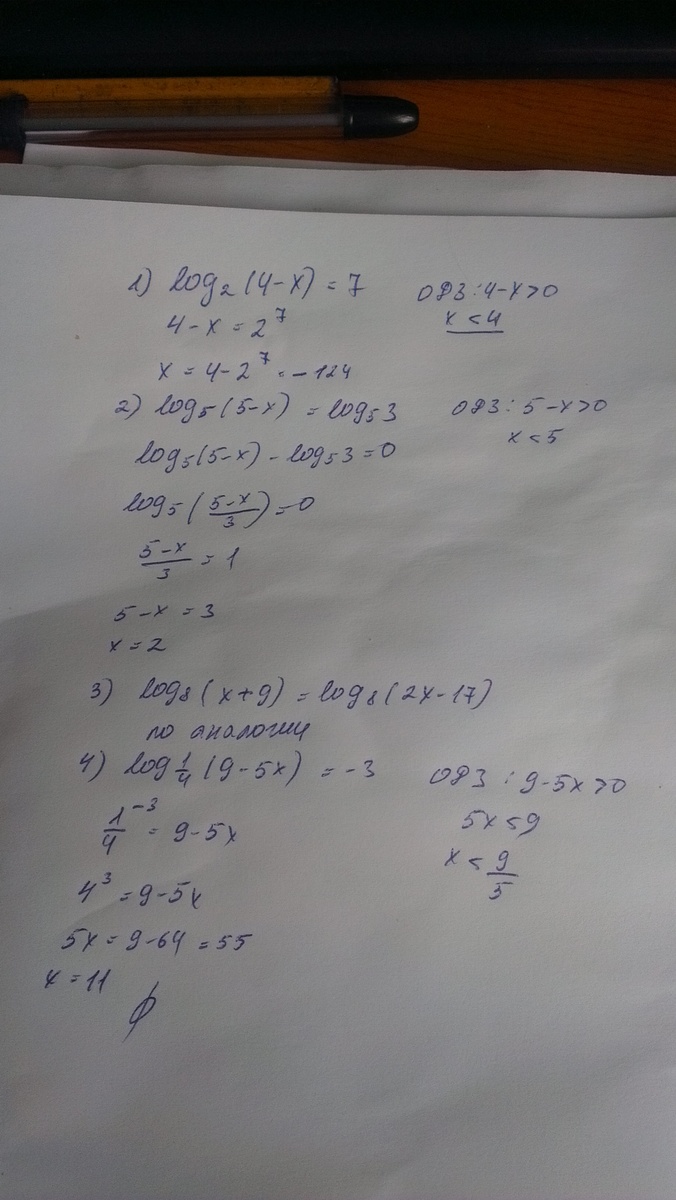 1) log₂(4-x) = 7 ОДЗ: 4-x>0
4-x = 2⁷ x < 4
x = 4-2⁷ = -124
2) log₅(5-x) = log₅3 ОДЗ: 5-x>0
log₅(5-x) - log₅3 = 0 x < 5
log₅((5-x)/3) = 0
(5-x)/3 = 1
5-x = 3
x = 2
3) log₈(x+9) = log₈(2x-17)
по аналогии
4) log 1/4 (9-5x) = -3 ОДЗ: 9-5x>0
1/4⁻³ = 9-5x 5x < 9
4³ = 9-5x x < 9/5
5x = 9-64 = 55
x = 11
∅